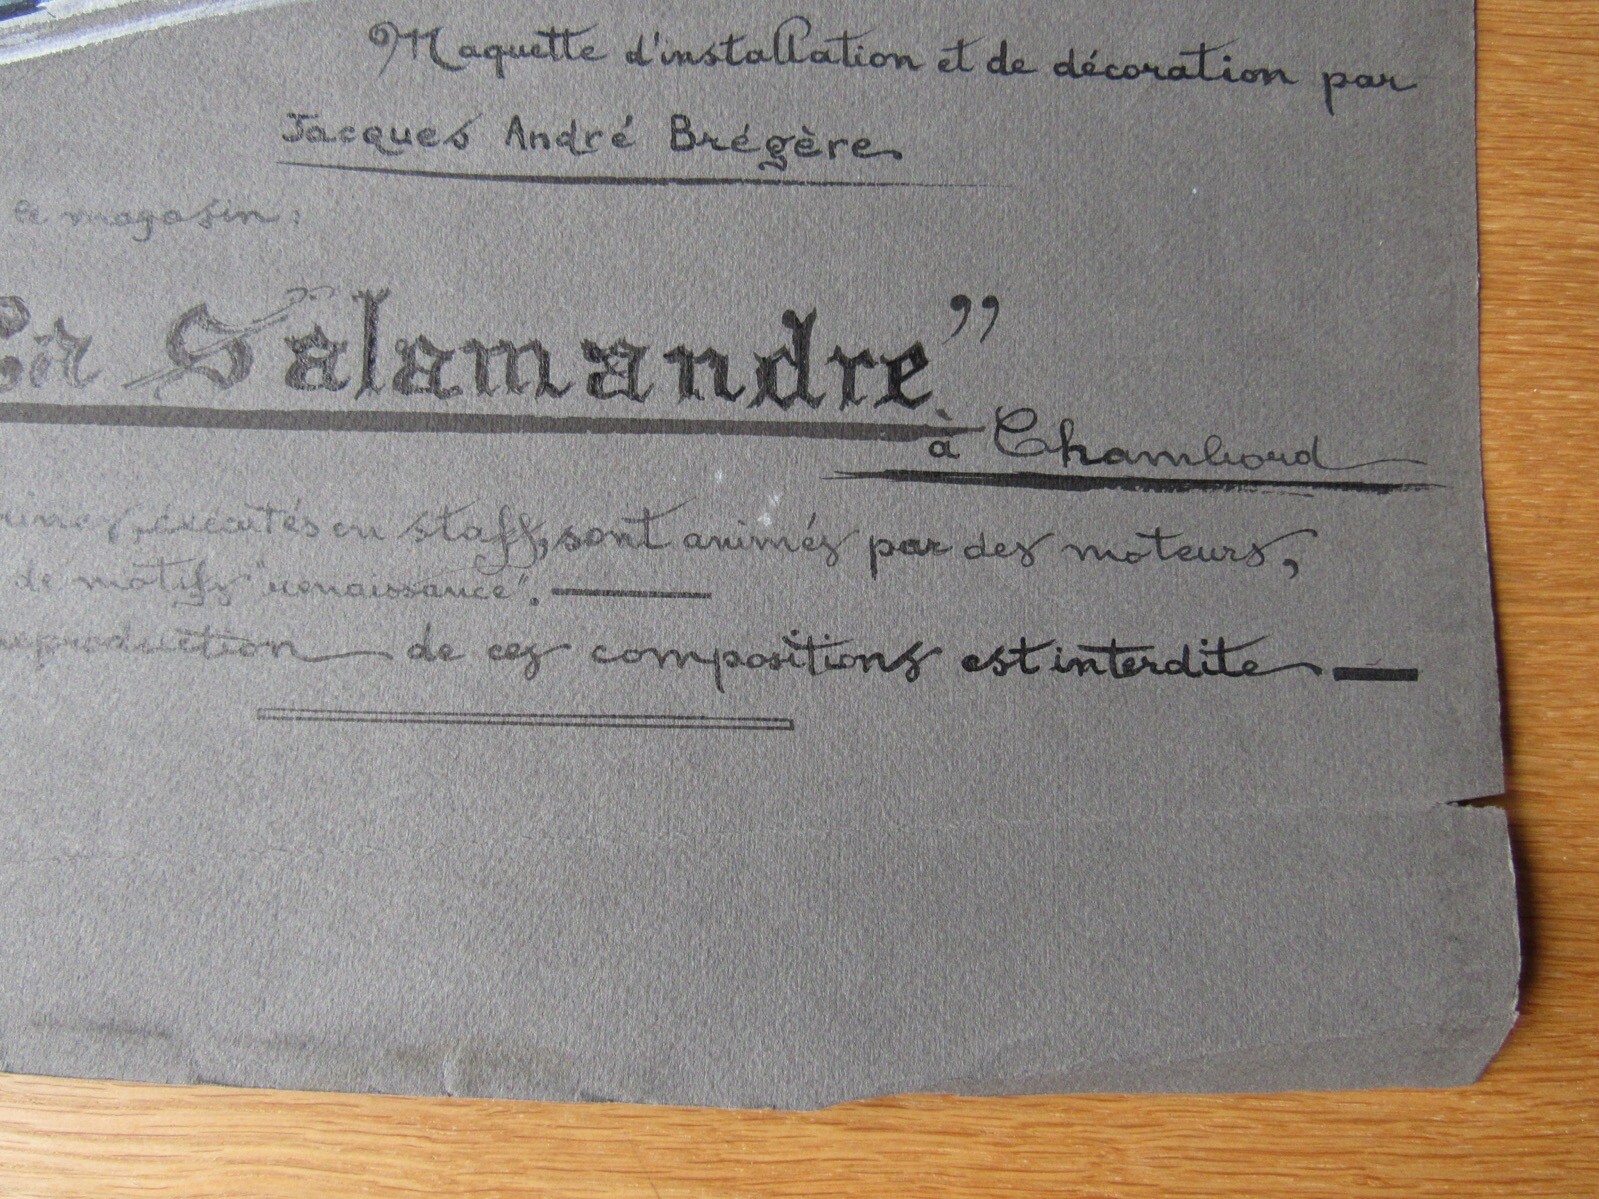 Maquette d'installation et de décoration par
Jacques André Brégère
magasin :
La Salamandre”
à Chambord
exécutés en staff, sont animés par des moteurs,
de motifs "renaissance".
reproduction de ces compositions est interdite